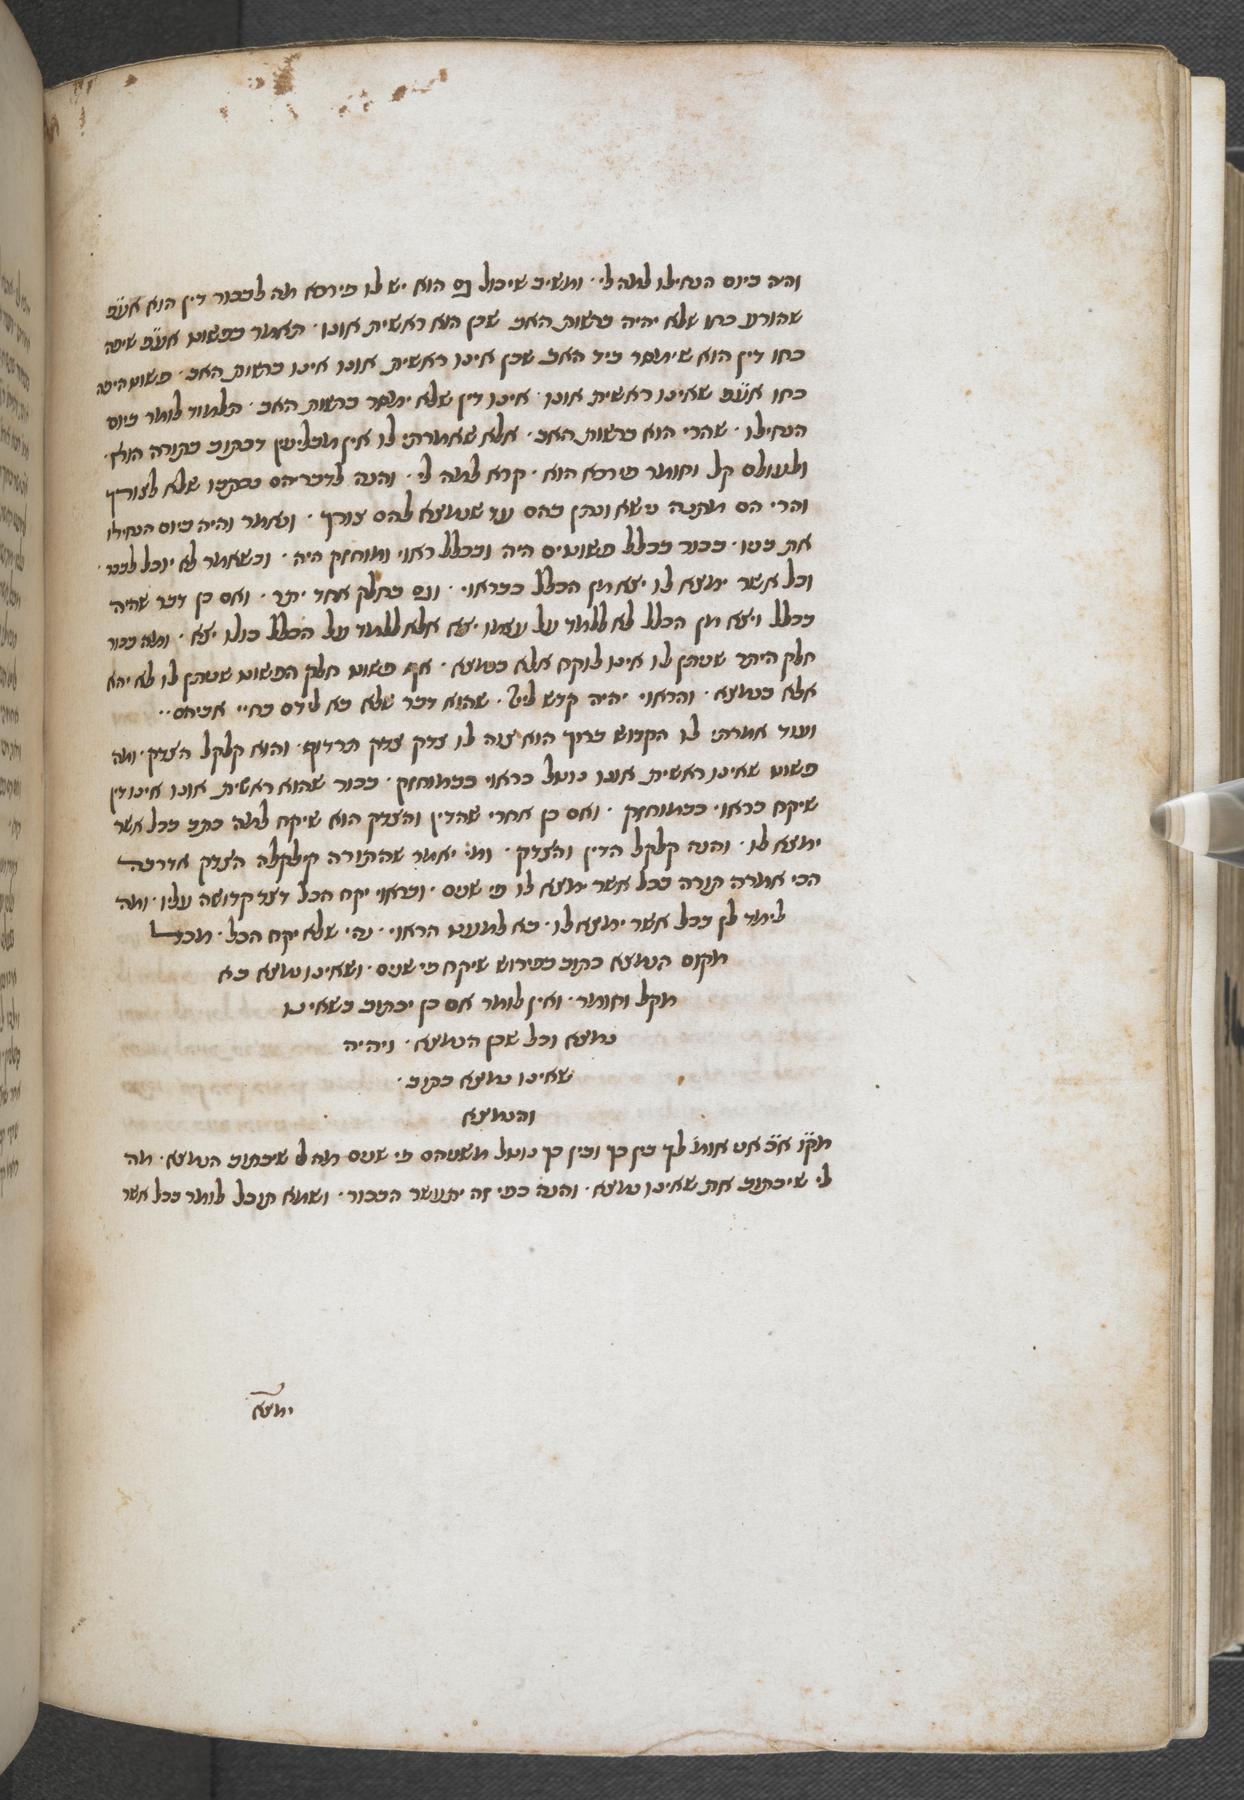 והיה ביום הנחילו למה לי · ומשיב שיכול גם הוא יש לו פירכא מה לבכור דין הוא אע״פ
שהורע כחו שלא יהיה ברשות האב שכן הוא ראשית אונו · תאמר בפשוט אע״פ שיפה
כחו דין הוא שימסר ביד האב שכן אינו ראשית אונו אינו ברשות האב · פשוט היפה
כחו אע״פ שאינו ראשית אונו · אינו דין שלא ימסר ברשות האב · תלמוד לומר ביום
הנחילו · שהרי הוא ברשות האב · אלא שאמרתי לו אין מבליעין דכתוב בתורה הוא ·
ולעולם קל וחומר פירכא הוא · קרא למה לי · והנה לדבריהם נכתבו שלא לצורך
והרי הם מתנה נישא ונתן בהם עד שנמצא להם צורך · ונאמר והיה ביום הנחילו
את בניו · בכור בכלל פשוטים היה ובכלל ראוי ומוחזק היה · וכשאמר לא יוכל לבכר ·
וכל אשר ימצא לו יצא מן הכלל בבראוי · וגם בחלק אחד יתר · ואם כן דבר שהיה
בכלל ויצא מן הכלל לא ללמד על עצמו יצא אלא ללמד על הכלל כולו יצא · ומה בכור
חלק היתר שנתן לו אינו לוקח אלא בנמצא · אף פשוט חלק הפשוט שנתן לו לא יהא
אלא בנמצא · והראוי יהיה קדש לי״י · שהוא דבר שלא בא לידם בחיי אביהם ··
ועוד אמרתי לו הקדוש ברוך הוא צוה לו צדק צדק תרדוף · והוא קלקל הצדק · ומה
פשוט שאינו ראשית אונו נוטל בראוי כבמוחזק · בכור שהוא ראשית אונו אינו דין
שיקח בראוי כבמוחזק · ואם כן אחרי שהדין והצדק הוא שיקח למה כתב בכל אשר
ימצא לו · והנה קלקל הדין והצדק · ומי יאמר שהתורה קילקלה הצדק אדרבה
הכי אמרה תורה בכל אשר ימצא לו פי שנים · ובראוי יקח הכל דצד קדושה עליו · ומה
לימד לך בכל אשר ימצא לו · בא למעט הראוי · נהי שלא יקח הכל · מכל
מקום הנמצא כתוב בפירוש שיקח פי שנים · ושאינו נמצא בא
מקל וחומר · ואין לומר אם כן יכתוב בשאינו
נמצא וכל שכן הנמצא · ויהיה
שאינו נמצא כתוב ·
והנמצא
מק״ו א״כ אני אומ׳ לך בין כך ובין כך נוטל משניהם פי שנים מה לי שיכתוב הנמצא · מה
לי שיכתוב את שאינו נמצא · והנה כפי זה יתעשר הבכור · ושמא תוכל לומר בכל אשר
ימצא